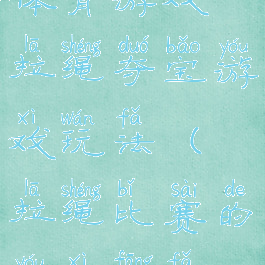 lā shéng duó bǎo yóu
拉绳夺宝游
xì wán fǎ
戏玩法（
lā shéng bǐ sài de
拉绳比赛的